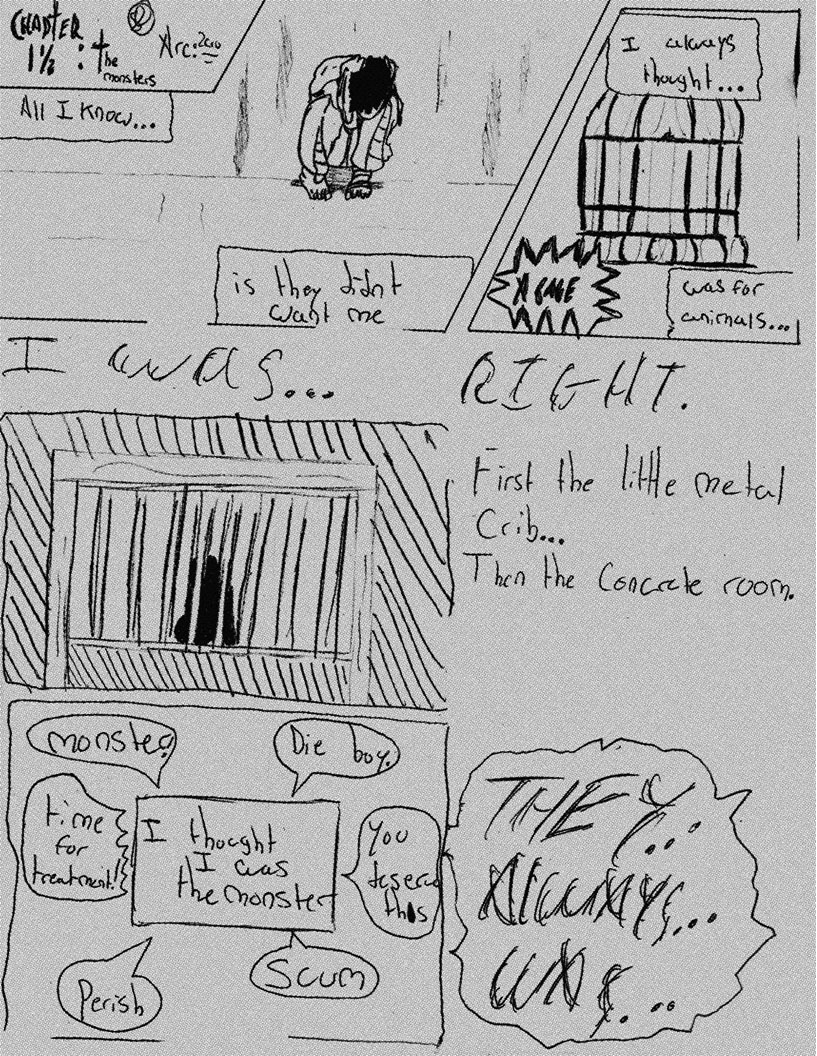 CHAPTER
1½ : the
monsters
Arc: Zero
All I know...
is they didnt
want me
I always
thought...
A CAGE
was for
animals...
I was...
RIGHT.
First the little metal
Crib...
Then the Concrete room.
monster
Die boy.
time
for
treatment!
I thought
I was
the monster
You
deserve
this
Perish
Scum
THEY...
ALWAYS...